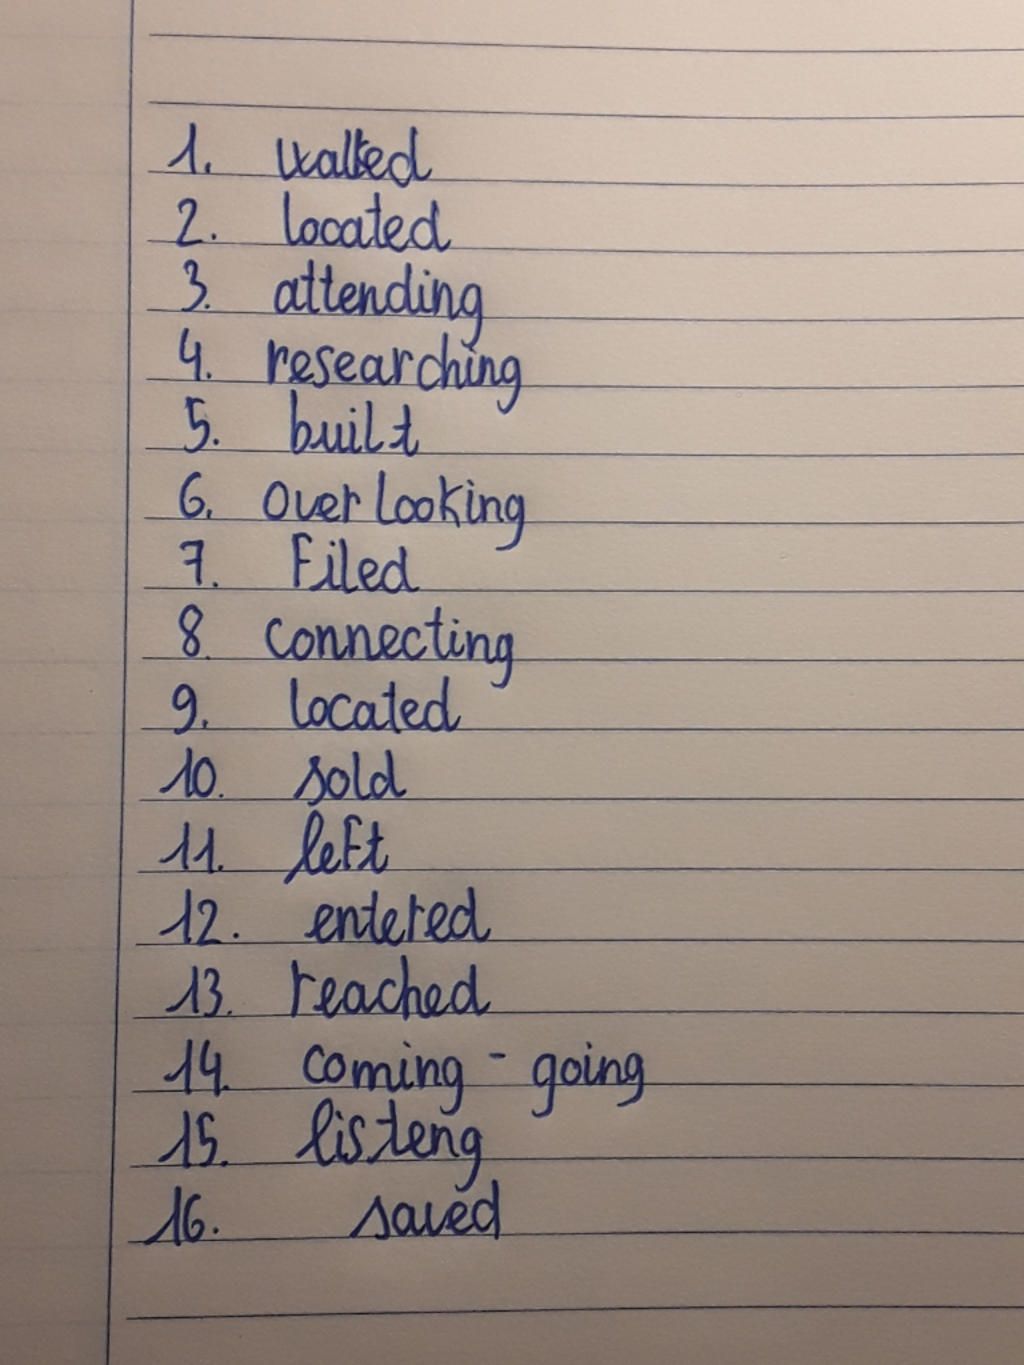 1. walked
2. located
3. attending
4. researching
5. built
6. overlooking
7. Filed
8. connecting
9. located
10. sold
11. left
12. entered
13. reached
14. coming - going
15. listeng
16. saved